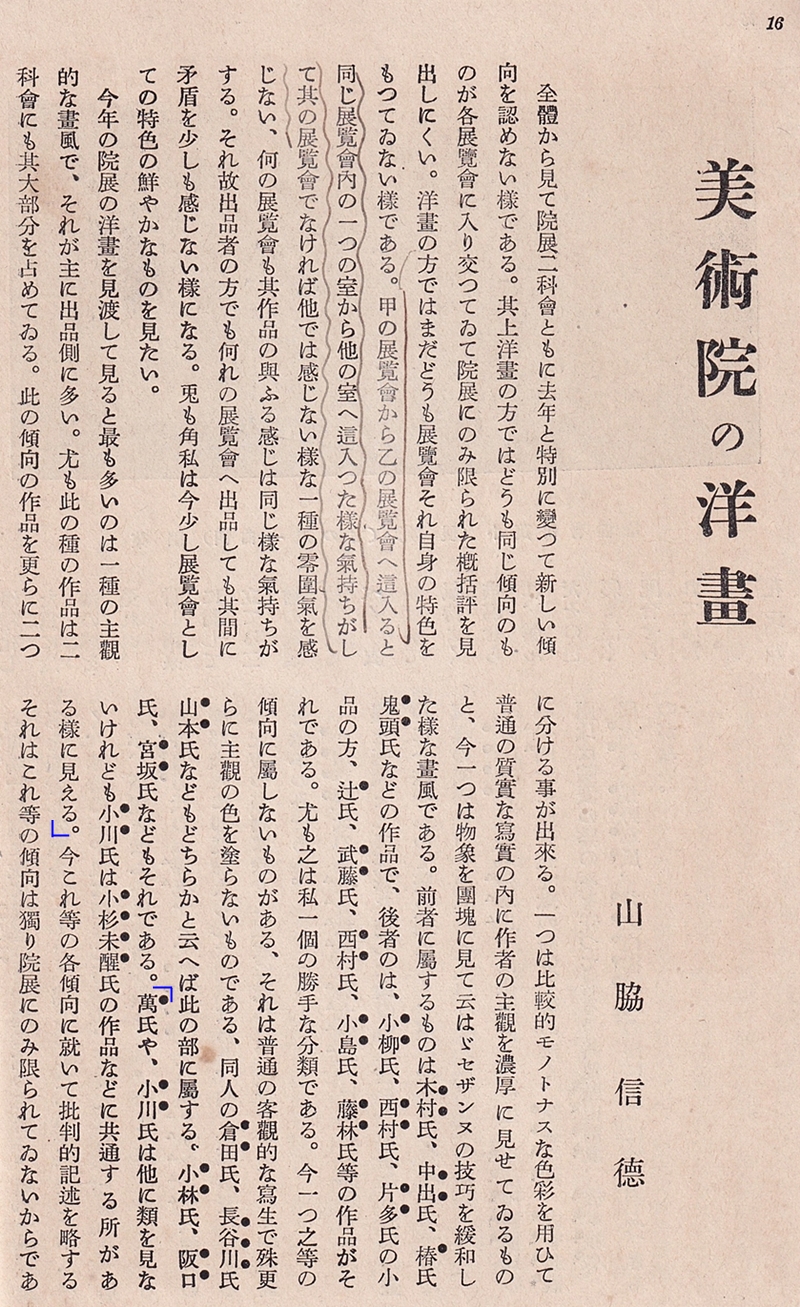 16
美術院の洋畫
山脇信德
全體から見て院展二科會ともに去年と特別に變つて新しい傾
向を認めない樣である。其上洋畫の方ではどうも同じ傾向のも
のが各展覽會に入り交つてゐて院展にのみ限られた槪括評を見
出しにくい。洋畫の方ではまだどうも展覽會それ自身の特色を
もつてゐない樣である。甲の展覽會から乙の展覽會へ這入ると
同じ展覽會內の一つの室から他の室へ這入つた樣な氣持ちがし
て其の展覽會でなければ他では感じない樣な一種の零圍氣を感
じない、何の展覽會も其作品の與ふる感じは同じ樣な氣持ちが
する。それ故出品者の方でも何れの展覽會へ出品しても其間に
矛盾を少しも感じない樣になる。兎も角私は今少し展覽會とし
ての特色の鮮やかなものを見たい。
今年の院展の洋畫を見渡して見ると最も多いのは一種の主觀
的な畫風で、それが主に出品側に多い。尤も此の種の作品は二
科會にも其大部分を占めてゐる。此の傾向の作品を更らに二つ
に分ける事が出來る。一つは比較的モノトナスな色彩を用ひて
普通の質實な寫實の內に作者の主觀を濃厚に見せてゐるもの
と、今一つは物象を團塊に見て云はゞセザンヌの技巧を緩和し
た樣な畫風である。前者に屬するものは木村氏、中出氏、椿氏
鬼頭氏などの作品で、後者のは、小柳氏、西村氏、片多氏の小
品の方、辻氏、武藤氏、西村氏、小島氏、藤林氏等の作品がそ
れである。尤も之は私一個の勝手な分類である。今一つ之等の
傾向に屬しないものがある、それは普通の客觀的な寫生で殊更
らに主觀の色を塗らないものである、同人の倉田氏、長谷川氏
山本氏などもどちらかと云へば此の部に屬する。小林氏、阪口
氏、宮坂氏などもそれである。萬氏や、小川氏は他に類を見な
いけれども小川氏は小杉未醒氏の作品などに共通する所があ
る樣に見える。今これ等の各傾向に就いて批判的記述を略する
それはこれ等の傾向は獨り院展にのみ限られてゐないからであ